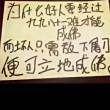 为什么好人要经过
九九八十一难才能
成佛
而坏人只需放下屠刀
便可立地成佛